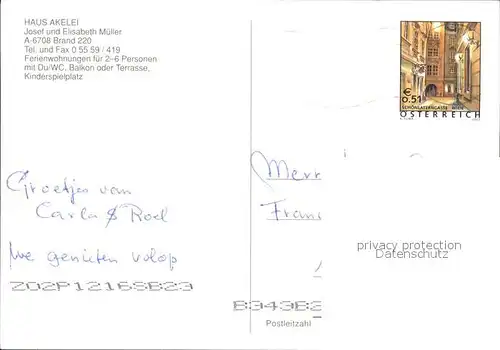 HAUS AKELEI
Josef und Elisabeth Müller
A-6708 Brand 220
Tel. und Fax 0 55 59 / 419
Ferienwohnungen für 2–6 Personen
mit Du/WC, Balkon oder Terrasse,
Kinderspielplatz
€
0.51
SCHÖNLATERNGASSE · WIEN
ÖSTERREICH
Groetjes van
Carla & Roel
We genieten volop
ZO2P1216SB23
Merr
Frans
privacy protection
Datenschutz
B343B2
Postleitzahl